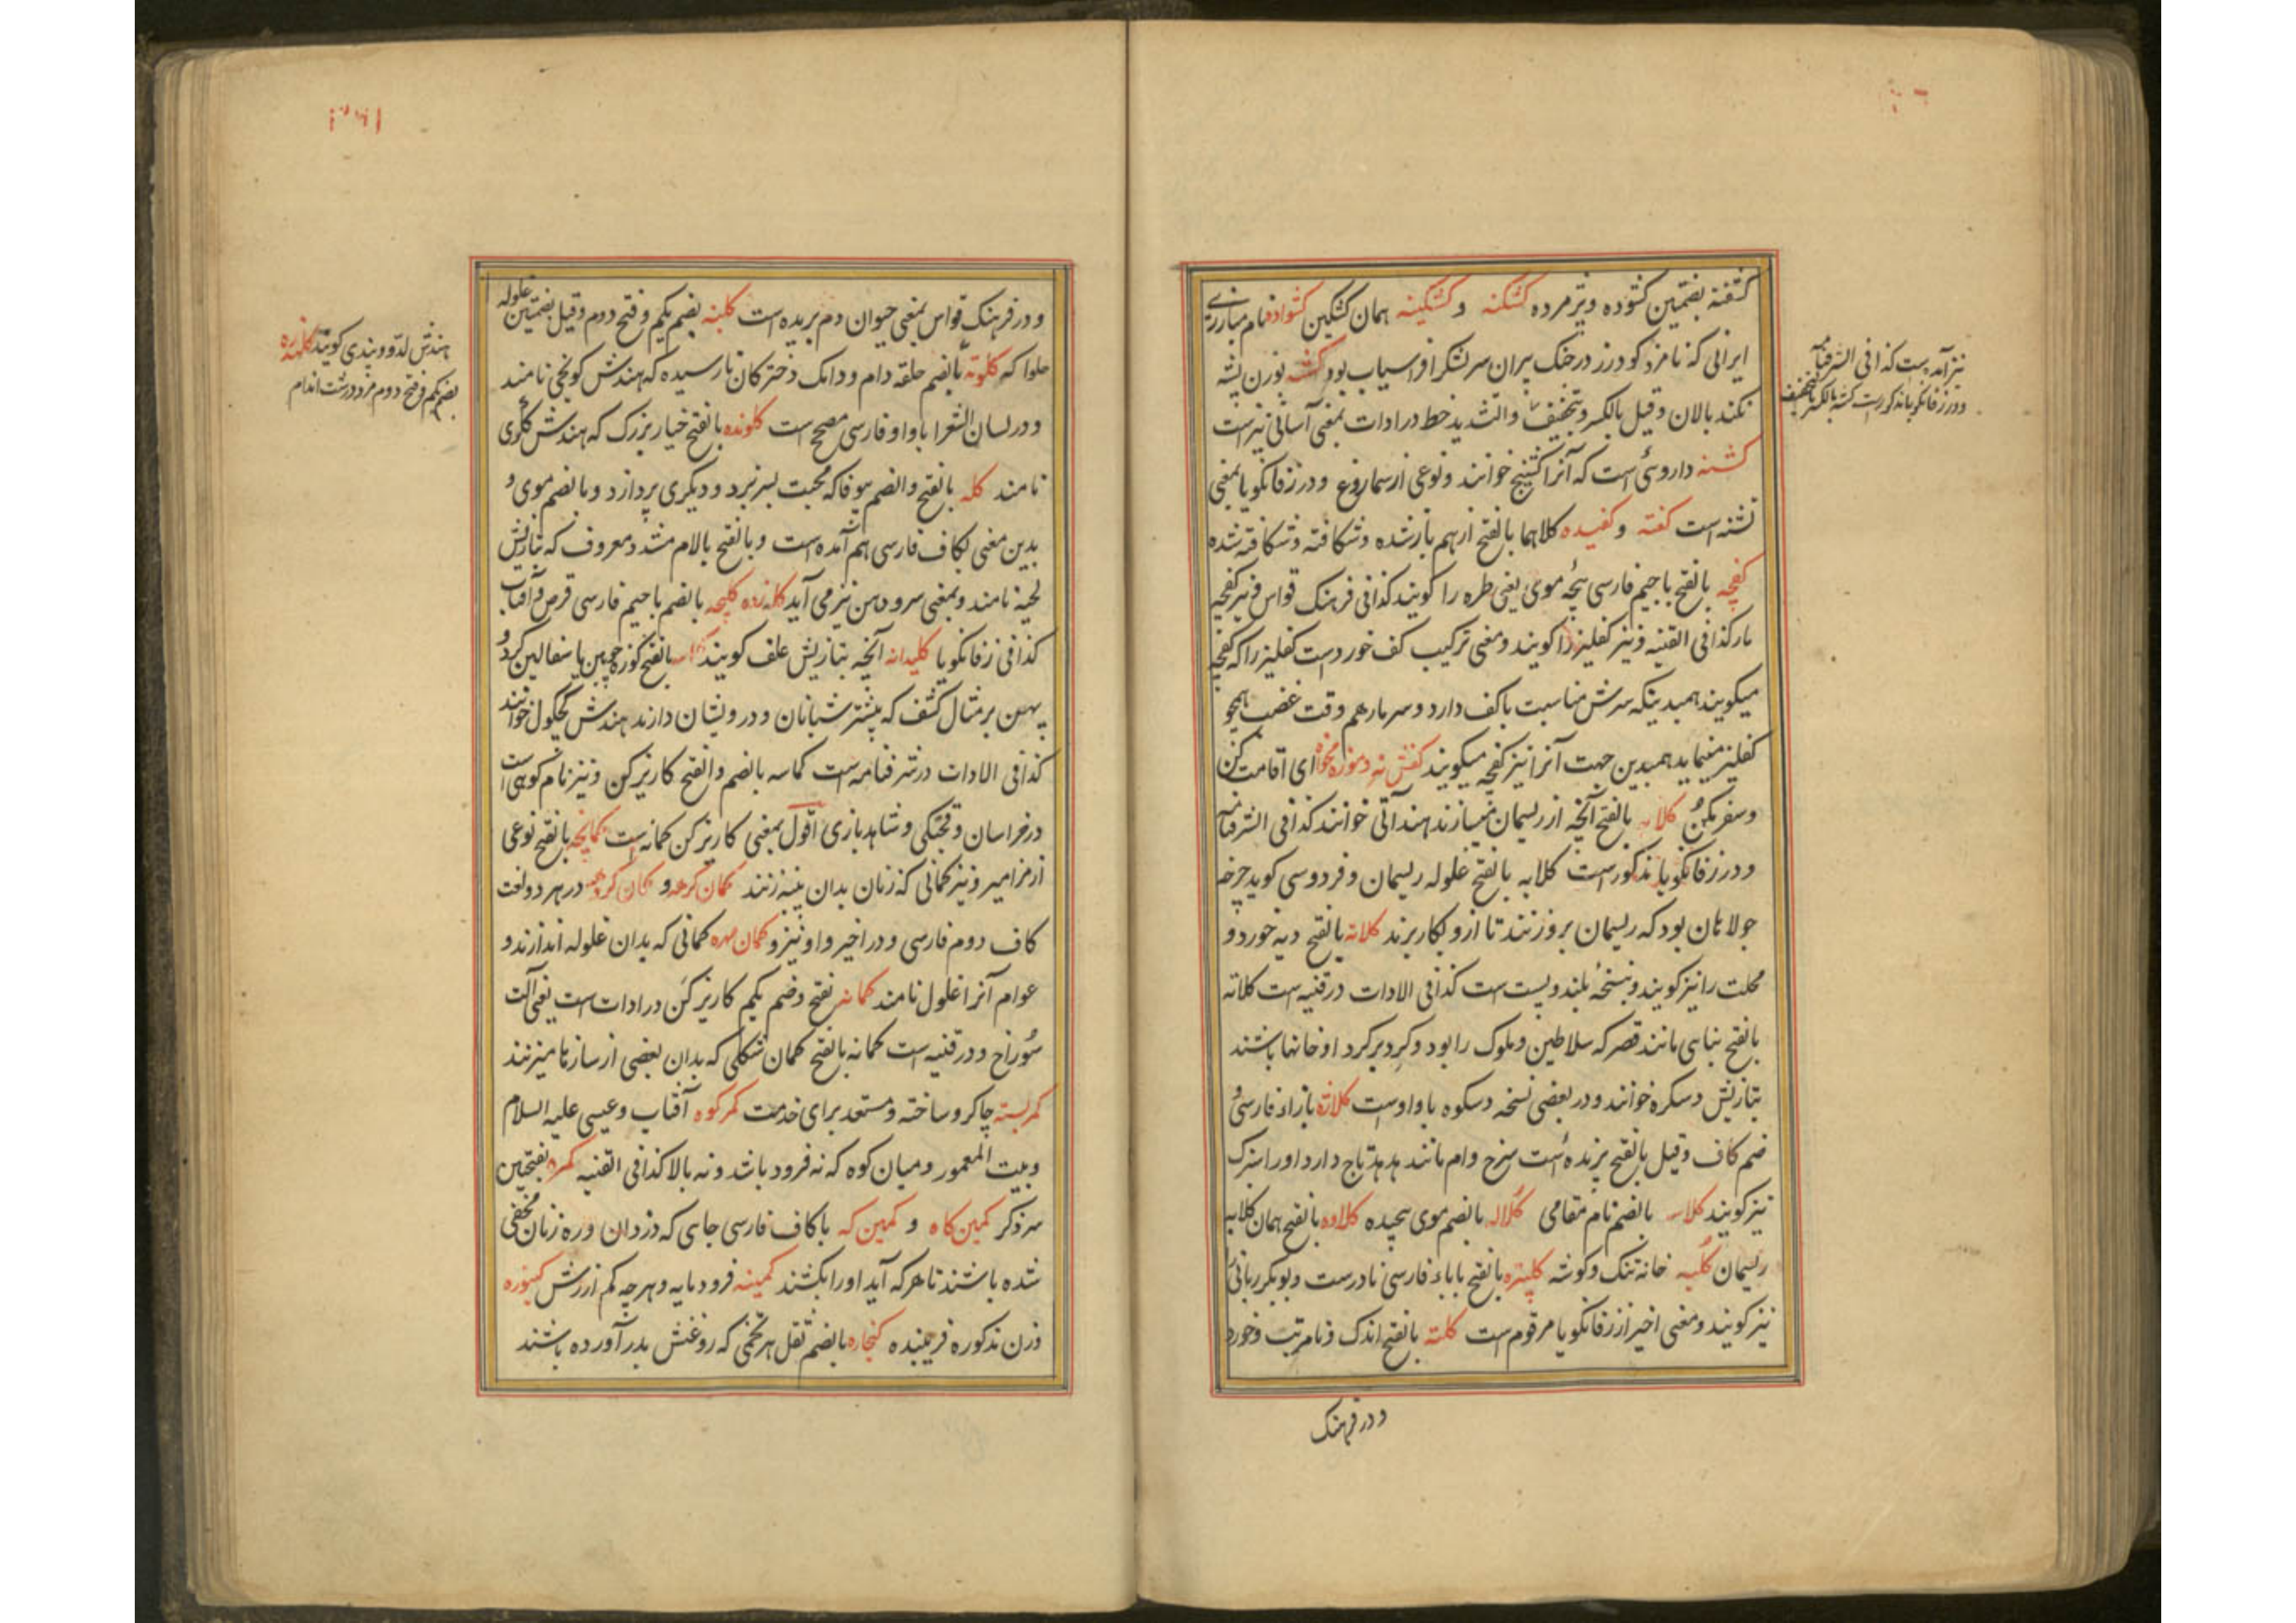 کشفته بضمتین کشوده و پژمرده کشکنه و کشکینه همان کشکین کشواد نام مبارزی
ایرانی که نامزد کودرز در جنک پیران سر لشکر افراسیاب بود کشه بوزن پشه
تکند بالان و قیل بالکسر و تخفیف و التشدید خط در ادات بمعنی آسانی نیز است
کشنه داروئی است که آنرا کشنیج خوانند و نوعی از سماروغ و در زفانکویا بمعنی
تشنه است کفته و کفیده کلاهما بالفتح از هم باز شده و شکافته و شکافته شده
کفچه بالفتح با جیم فارسی پیچه موی یعنی طره را کویند کذا فی فرهنک قواس و نیز کفچه
مار کذا فی القنیه و نیز کفلیز را کویند و معنی ترکیب کف خورد است کفلیز را که کفچه
میکویند همبدینکه سرش مناسبت باکف دارد و سر مار هم وقت غضب همچو
کفلیز مینماید همبدین جهت آنرا نیز کفچه میکویند کفش نه و موزه مخواه ای اقامت کن
و سفر مکن کلابه بالفتح آنچه از ریسمان میسازند هند آنی خوانند کذا فی الشرفنامه
و در زفانکویا مذکور است کلابه بالفتح غلوله ریسمان و فردوسی کوید چرخه
جولاهان بود که ریسمان بروزنند تا ازو بکار برند کلاته بالفتح دیه خورد و
محلت را نیز کویند و بنسخه بلند و پست است کذا فی الادات در قنیه است کلاته
بالفتح بنای مانند قصر که سلاطین و ملوک را بود و کرد بر کرد او خانها باشند
بتازیش دسکره خوانند و در بعضی نسخه دسکوه با واوست کلاژه بازاء فارسی و
ضم کاف و قیل بالفتح پرنده است سرخ وام مانند هدهد تاج دارد اورا سبزک
نیز کویند کلاسه بالضم نام مقامی کلاله بالضم موی پیچیده کلاوه بالفتح همان کلابه
ریسمان کلبه خانه تنک و کوشه کلپتره بالفتح باباء فارسی نادرست و بوبکر ربانی را
نیز کویند و معنی اخیر از زفانکویا مرقوم است کلته بالفتح اندک و نامرتب و خورد
نیز آمده است کذا فی الشرفنامه
و در زفانکویا مذکور است کشه بالکسر بالتخفیف
و در فرهنک
و در فرهنک قواس بمعنی حیوان دم بریده است کلبنه بضم یکم و فتح دوم و قیل بضمتین غلوله
حلوا که کلوته بالضم حلقه دام و دامک دخترکان نارسیده که هندش کونجی نامند
و در لسان الشعرا باواو فارسی مصحح است کلونده بالفتح خیار بزرک که هندش ککری
نامند کله بالفتح و الضم بیوفا که محبت بسر نبرد و دیکری پردازد و بالضم موی و
بدین معنی بکاف فارسی هم آمده است و بالفتح بالام مشدد معروف که بتازیش
لحیة نامند و بمعنی سر و دهن نیز می آید کله زده کلیچه بالضم با جیم فارسی قرص آفتاب
کذا فی زفانکویا کلیدانه آنچه بتازیش غلف کویند کماسه بالفتح کوزه چوبین یا سفالین کرد و
پهن بر مثال کشف که بیشتر شبانان و درویشان دارند هندش کجکول خوانند
کذا فی الادات در شرفنامه است کماسه بالضم و الفتح کاریزکن و نیز نام کوهی است
در خراسان و قحبکی و شاهدبازی اقول بمعنی کاریزکن کمانه است کمانچه بالفتح نوعی
از مزامیر و نیز کمانی که زنان بدان پنبه زنند کمان کرهه و کمان کروهه در هر دو لغت
کاف دوم فارسی و در اخیر واو نیز و کمان مهره کمانی که بدان غلوله اندازند و
عوام آنرا غلول نامند کمانه بفتح و ضم یکم کاریزکن در ادات است یعنی آلت
سوراخ و در قنیه است کمانه بالفتح کمان شکلی که بدان بعضی از سازها میزنند
کمربسته چاکر و ساخته و مستعد برای خدمت کمرکوه آفتاب و عیسی علیه السلام
و بیت المعمور و میان کوه که نه فرود باشد و نه بالا کذا فی القنیه کمره بفتحتین
سرذکر کمین کاه و کمین که باکاف فارسی جای که دزدان و ره زنان مخفی
شده باشند تا هر که آید اورا بکشند کمینه فرومایه و هر چه کم ارزش کنبوره
وزن مذکوره فریبنده کنجاره بالضم ثقل هر تخمی که روغنش بدر آورده باشند
هندش لدو و پندی کویند کلنده
بضم یکم و فتح دوم مرد درشت اندام